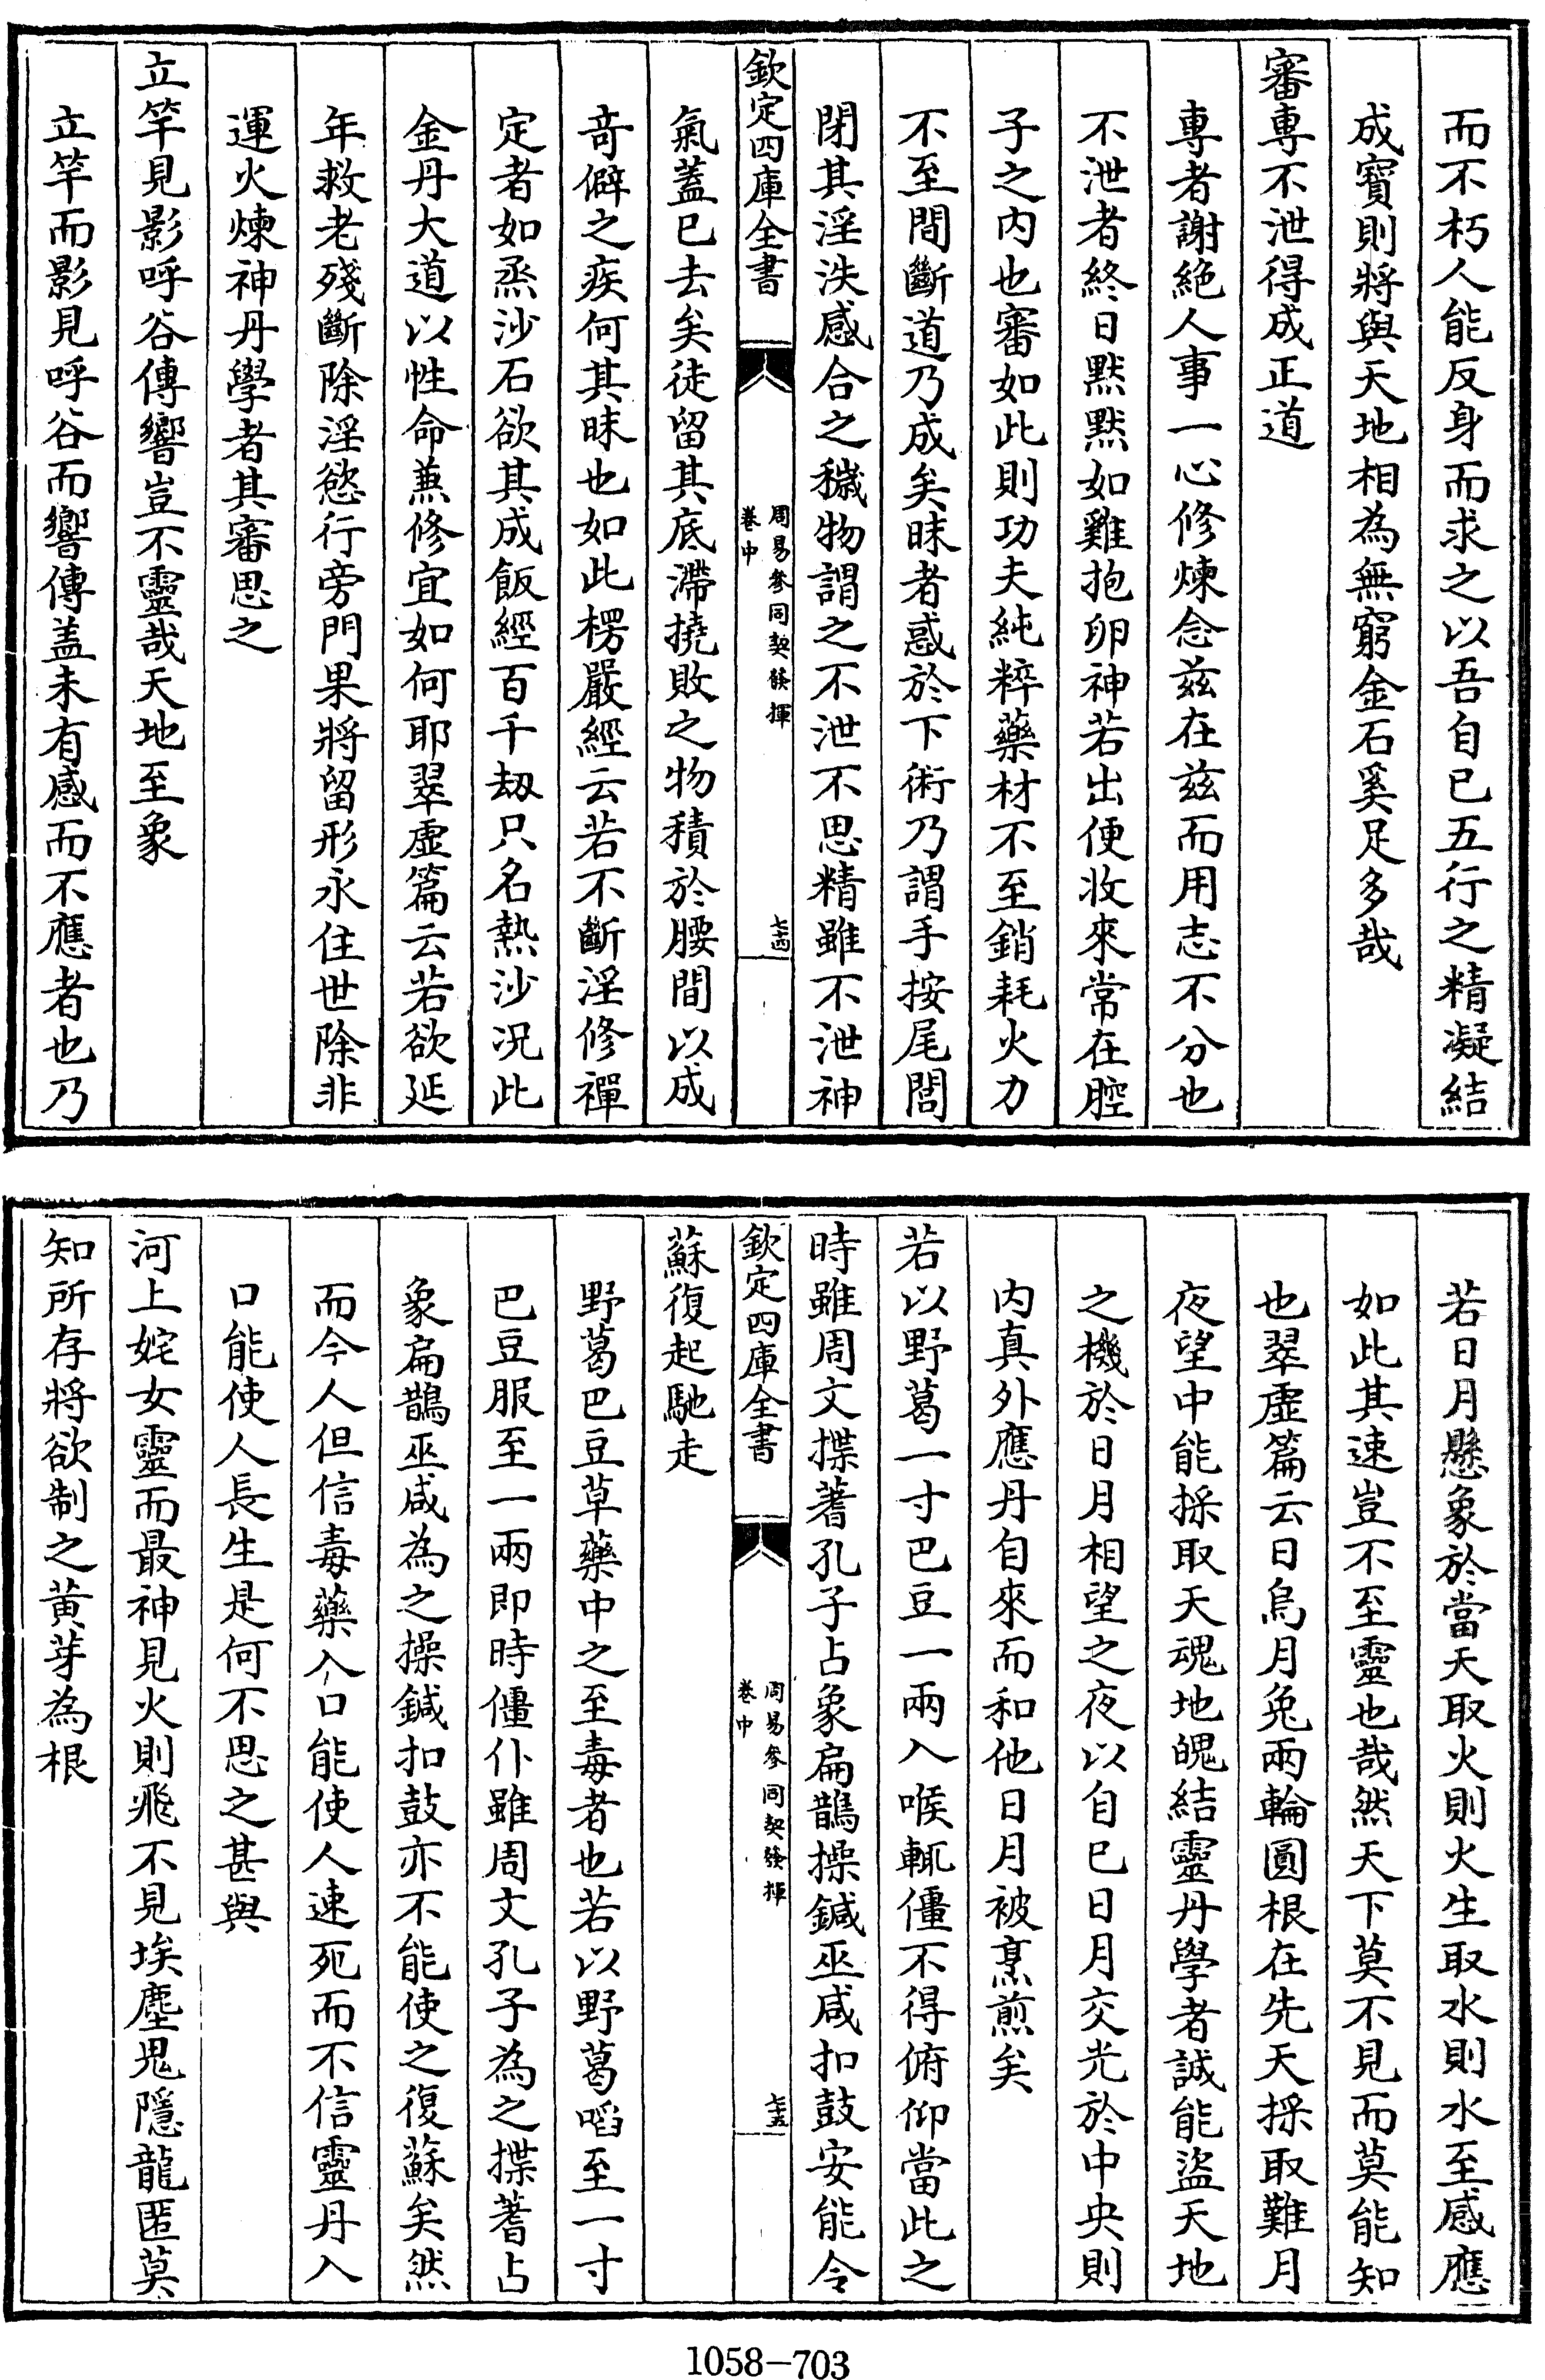 而不朽人能反身而求之以吾自己五行之精凝結
成寳則將與天地相為無窮金石奚足多哉
審專不泄得成正道
專者謝絶人事一心修煉念兹在兹而用志不分也
不泄者終日黙黙如雞抱卵神若出便收來常在腔
子之内也審如此則功夫純粹藥材不至銷耗火力
不至間斷道乃成矣昧者惑於下術乃謂手按尾閭
閉其淫泆感合之穢物謂之不泄不思精雖不泄神
欽定四庫全書
周易參同契發揮
卷中
七十四
氣蓋已去矣徒留其底滯撓敗之物積於腰間以成
竒僻之疾何其昧也如此楞嚴經云若不斷淫修禪
定者如烝沙石欲其成飯經百千劫只名熱沙况此
金丹大道以性命兼修宜如何耶翠虚篇云若欲延
年救老殘斷除淫慾行旁門果將留形永住世除非
運火煉神丹學者其審思之
立竿見影呼谷傳響豈不靈哉天地至象
立竿而影見呼谷而響傳盖未有感而不應者也乃
若日月懸象於當天取火則火生取水則水至感應
如此其速豈不至靈也哉然天下莫不見而莫能知
也翠虚篇云日烏月兔兩輪圓根在先天採取難月
夜望中能採取天魂地魄結靈丹學者誠能盜天地
之機於日月相望之夜以自己日月交光於中央則
内真外應丹自來而和他日月被烹煎矣
若以野葛一寸巴豆一兩入喉輒僵不得俯仰當此之
時雖周文揲蓍孔子占象扁鵲操鍼巫咸扣鼓安能令
欽定四庫全書
周易參同契發揮
卷中
七十五
蘇復起馳走
野葛巴豆草藥中之至毒者也若以野葛啗至一寸
巴豆服至一兩即時僵仆雖周文孔子為之揲蓍占
象扁鵲巫咸為之操鍼扣鼓亦不能使之復蘇矣然
而今人但信毒藥入口能使人速死而不信靈丹入
口能使人長生是何不思之甚與
河上姹女靈而最神見火則飛不見埃塵鬼隱龍匿莫
知所存將欲制之黄芽為根
1058-703